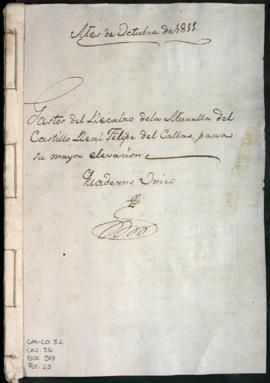 Mes de Octubre de 1811
Gastos del Recalzo de la Muralla del
Castillo Real Felipe del Callao, para
su mayor elevacion
Quaderno Unico
GM-CO 32
CAJ. 36
DOC 317
FOL. 23